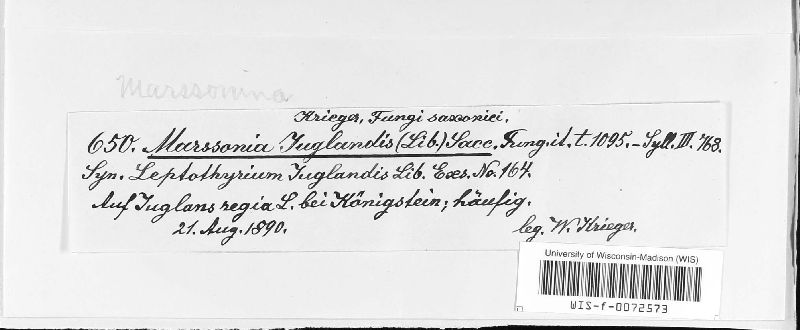 Marssonina
Krieger, Fungi saxonici.
650. Marssonia Juglandis (Lib.) Sacc. Fung. it. t. 1095. – Syll. III. 768.
Syn. Leptothyrium Juglandis Lib. Exs. No. 164.
Auf Juglans regia L. bei Königstein; häufig.
21. Aug. 1890.
leg. W. Krieger.
University of Wisconsin-Madison (WIS)
WIS-f-0072573